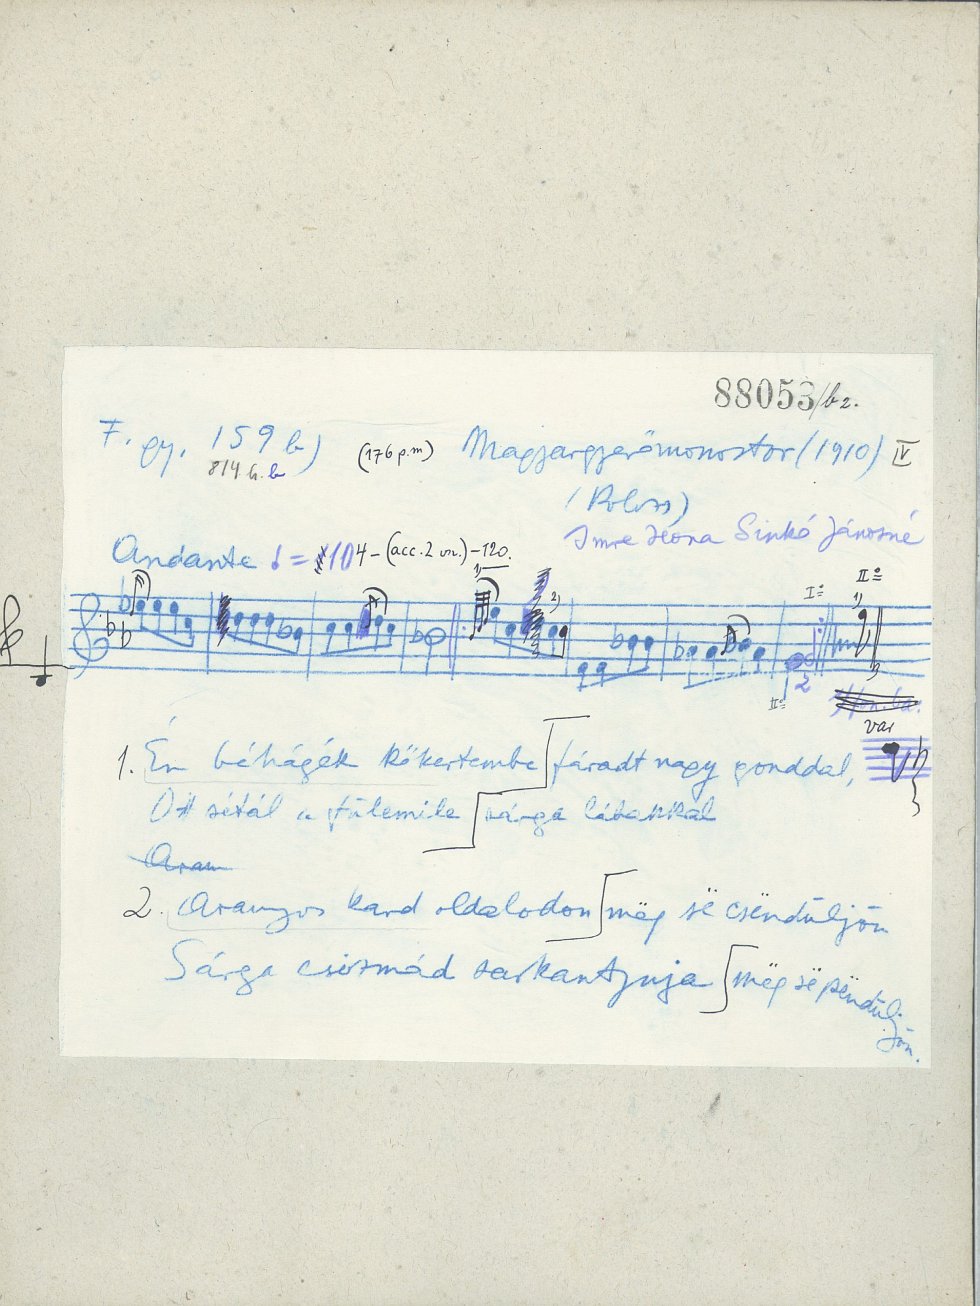 88053/b2.
F. gy. 159 b) (176 p.m) Magyargyerőmonostor (1910) IV
814 h. b
(Kolozs)
Imre Ilona Sinkó Jánosné
Andante ♩ = 104 – (acc. 2 vn.) – 120.
1) 2) Iº IIº 1)
2 IIº
var
1. Én béhágék kőkertembe fáradt nagy gonddal,
Ott sétál a fülemile sárga lábakkal
Aran
2. Aranyos kard oldalodon mëg së csëndüljön
Sárga csizmád sarkantyuja mëg së pëndüljön.